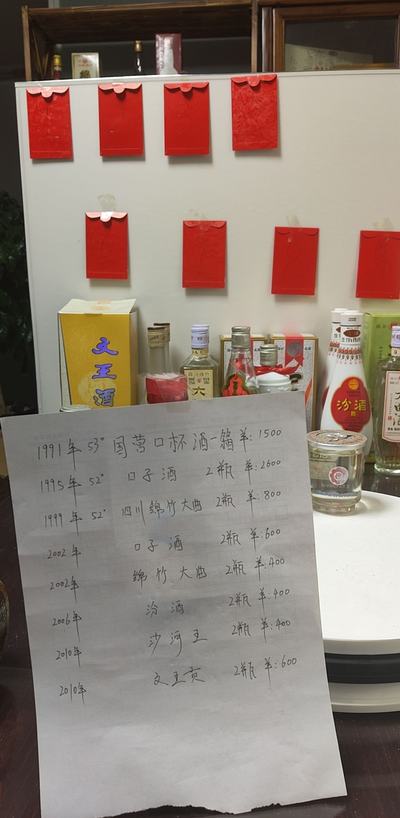 文王酒
六
汾酒
1991年 53° 国营口杯酒一箱 羊:1500
1995年 52° 口子酒 2瓶 羊:2600
1999年 52° 四川绵竹大曲 2瓶 羊:800
2002年 口子酒 2瓶 羊:600
2002年 绵竹大曲 2瓶 羊:400
2006年 汾酒 2瓶 羊:400
2010年 沙河王 2瓶 羊:400
2010年 文王贡 2瓶 羊:600